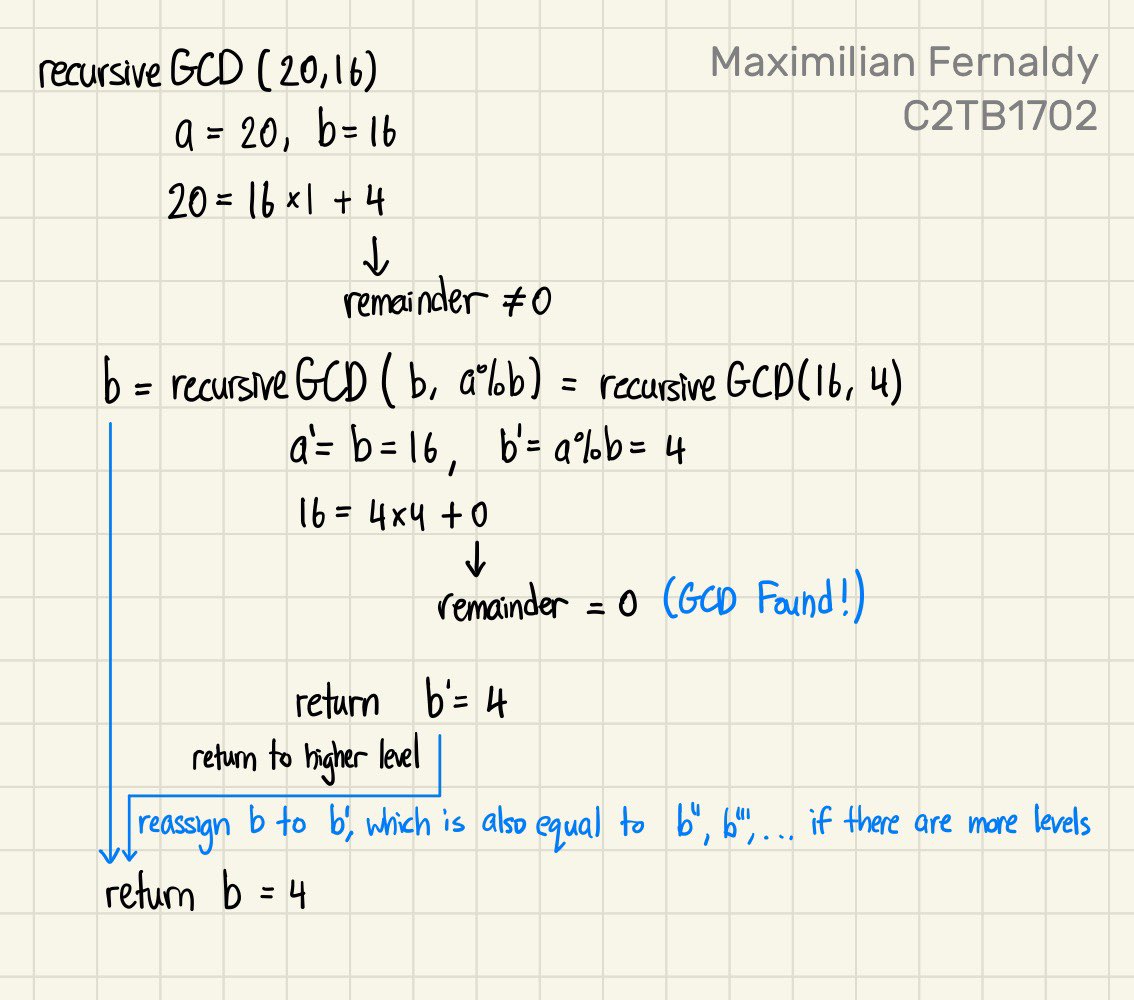 recursiveGCD (20,16)
Maximilian Fernaldy
C2TB1702
a = 20, b = 16
20 = 16 × 1 + 4
↓
remainder ≠ 0
b = recursiveGCD ( b, a%b) = recursiveGCD(16, 4)
a' = b = 16, b' = a%b = 4
16 = 4×4 + 0
↓
remainder = 0 (GCD Found!)
return b' = 4
return to higher level
reassign b to b', which is also equal to b'', b''', ... if there are more levels
return b = 4